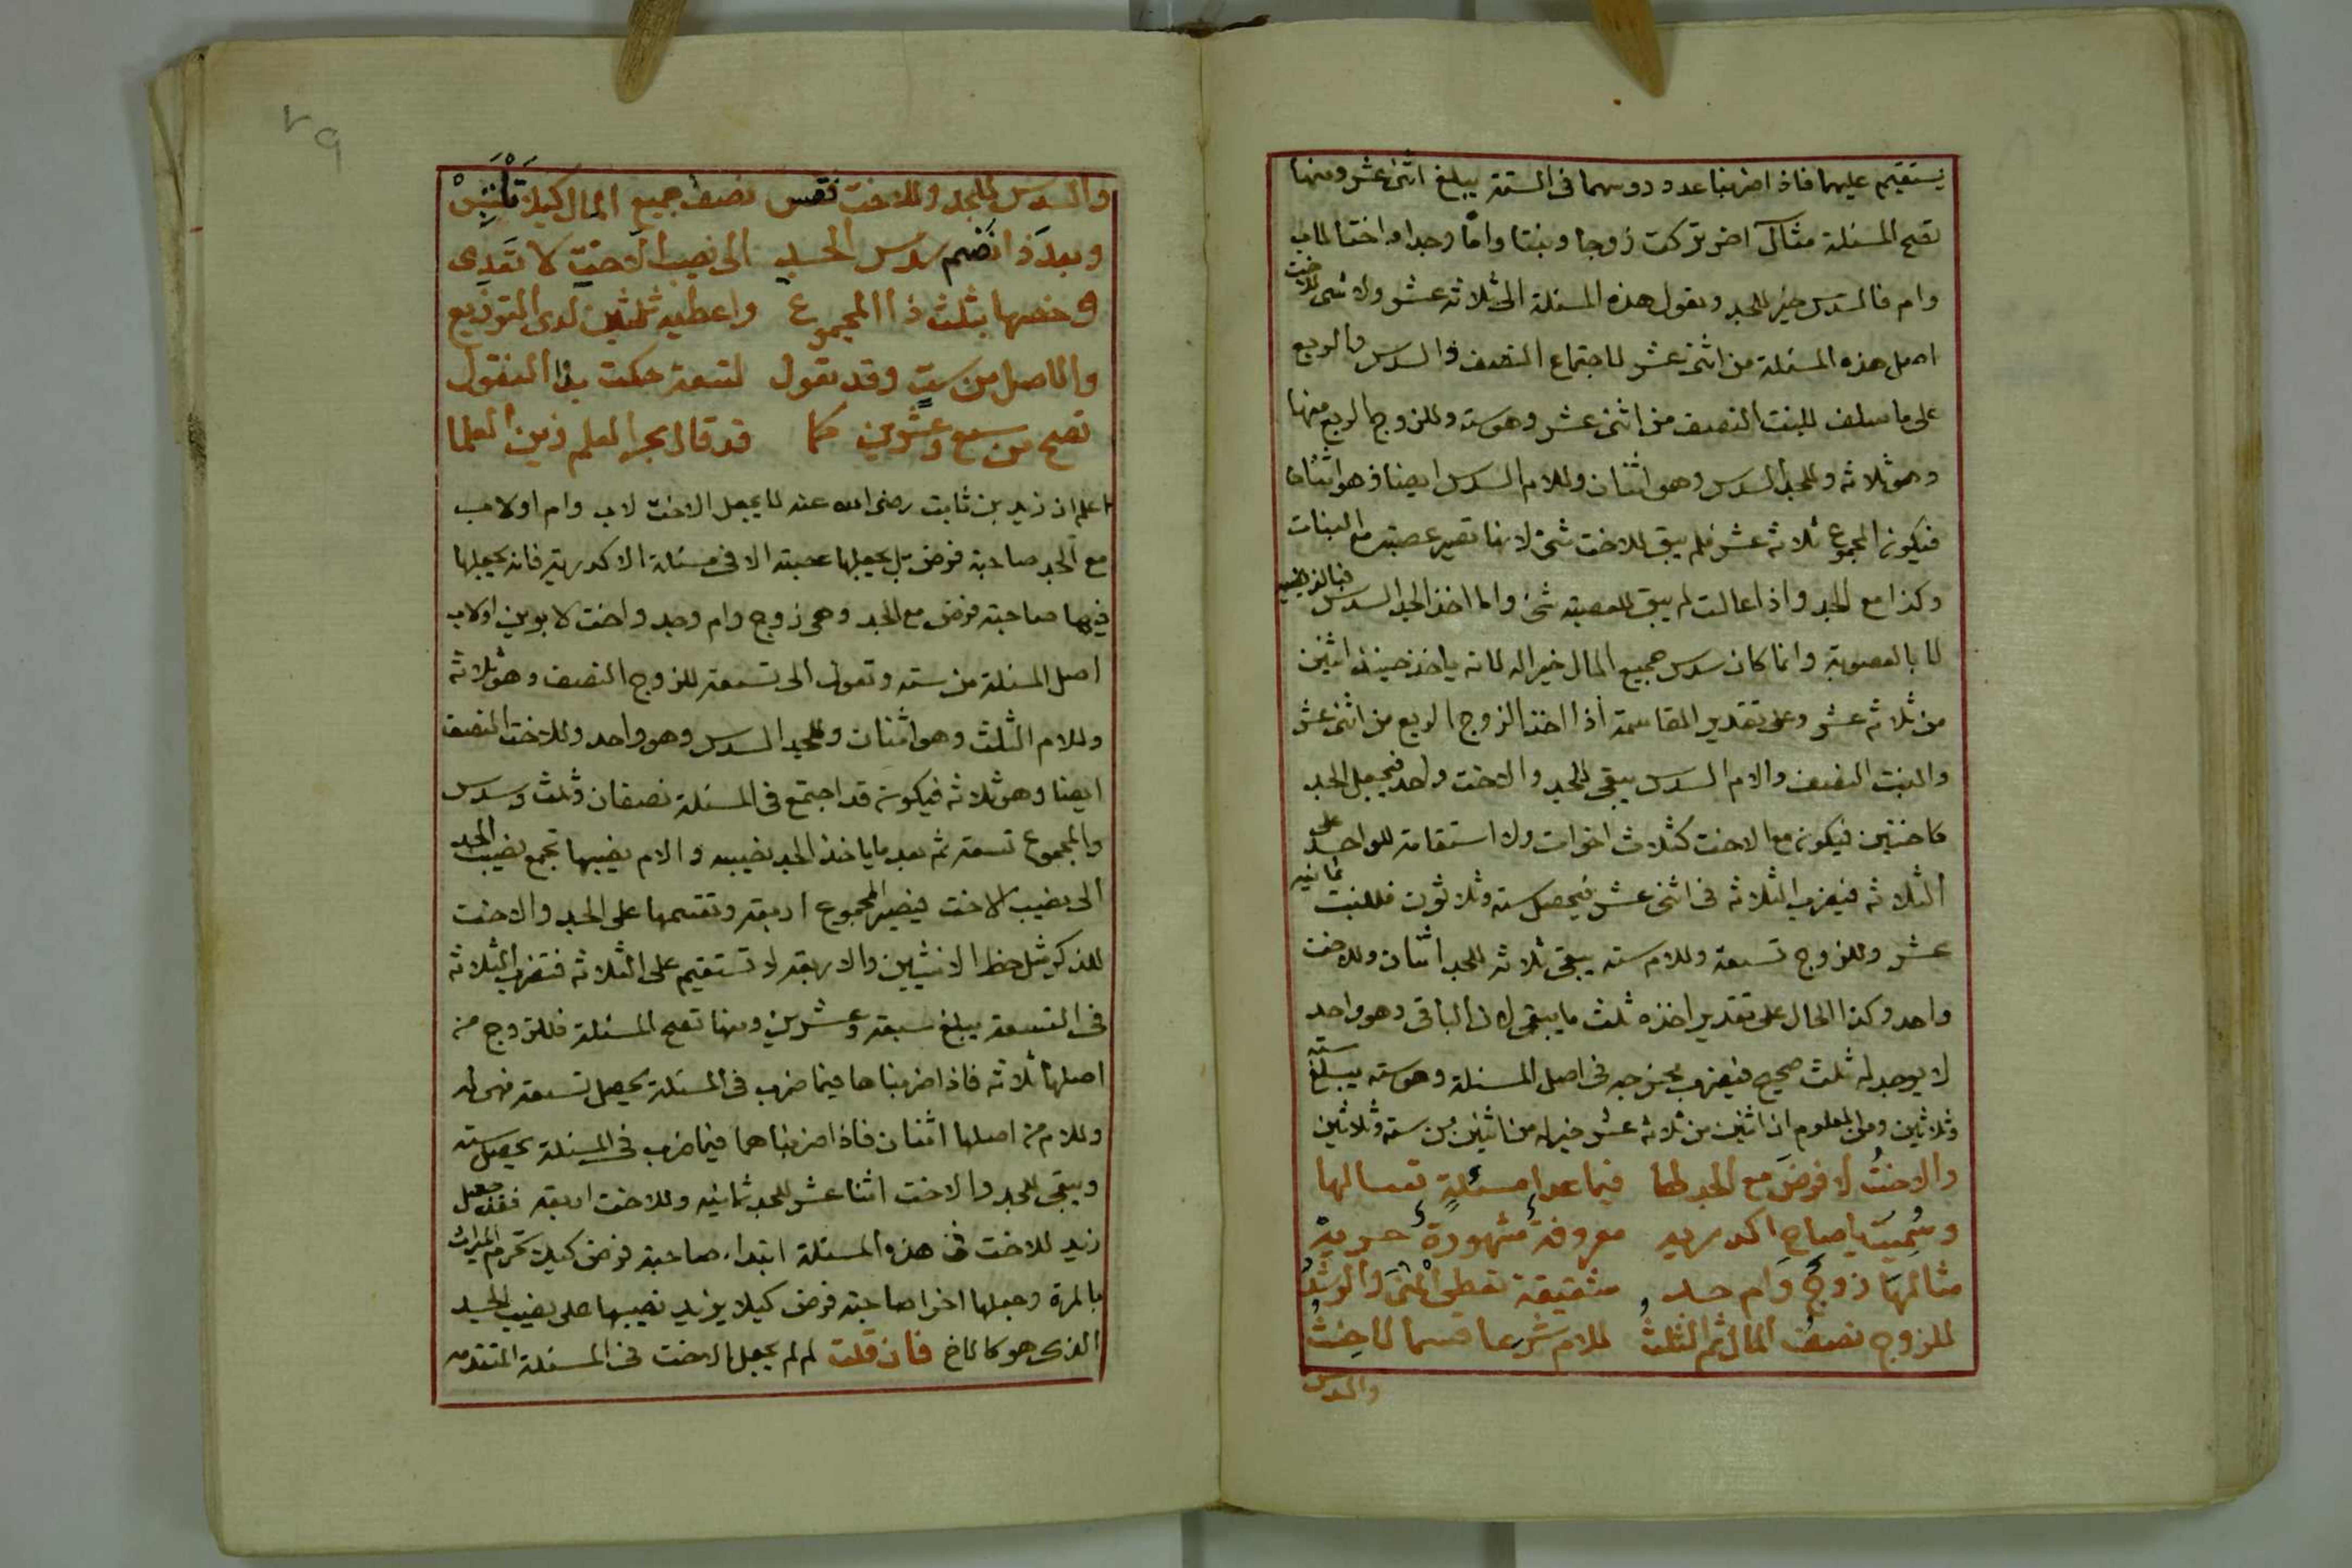 يستقيم عليهما فاذا ضربنا عدد رؤسهما فى الستة يبلغ اثنى عشر ومنها
تصح المسئلة مثال آخر تركت زوجا وبنتا واما وجدا واختا لاب
وام فالسدس خير للجد وتعول هذه المسئلة الى ثلاثة عشر ولا شى للاخت
اصل هذه المسئلة من اثنى عشر لاجتماع النصف والسدس والربع
على ما سلف للبنت النصف من اثنى عشر وهو ستة وللزوج الربع منها
وهو ثلاثة وللجد السدس وهو اثنان وللام السدس ايضا وهو اثنان
فيكون المجموع ثلاثة عشر فلم يبق للاخت شئ لانها تصير عصبة مع البنات
وكذا مع الجد واذا عالت لم يبق للعصبة شئ واما اخذ الجد السدس فبالفرضيه
لا بالعصوبة وانما كان سدس جميع المال خيرا له لانه ياخذ حينئذ اثنين
من ثلاثة عشر وعلى تقدير المقاسمة اذا اخذ الزوج الربع من اثنى عشر
والبنت النصف والام السدس يبقى للجد والاخت واحد فيجعل الجد
كاختين فيكون مع الاخت كثلاث اخوات ولا استقامة للواحد على
الثلاثة فيضرب الثلاثة فى اثنى عشر فيحصل ستة وثلاثون فللبنت ثمانيه
عشر وللزوج تسعة وللام ستة يبقى ثلاثة للجد اثنان وللاخت
واحد وكذا الحال على تقدير اخذه ثلث ما يبقى لان الباقى وهو واحد
لا يوجد له ثلث صحيح فيضرب مخرجه فى اصل المسئلة وهو ستة يبلغ ستة
وثلاثين ومن المعلوم ان اثنين من ثلاثة عشر خير له من اثنين من ستة وثلاثين
والاختُ لا فرضَ مع الجد لها فيما عدا مسئلةٍ
وسُمِّيَت يا صاح اكدريه معروفةٌ مشهورةٌ
مثالها زوجٌ وام جد شقيقة تعطى المنى والرشدُ
للزوج نصفُ المال ثم الثلثُ للام شرعا قسما
والسدس
والسدس للجد وللاخت فقس نصف جميع المال كيلا تلتبسْ
وبعدَ ذا نضم سدس الجد الى نصيب الاخت لا تعدى
وخصها بثلث ذا المجموع واعطيه ثلثين لدى التوزيع
والاصل من ستٍ وقد تعول لتسعة حكت بذا النقول
تصح من سبع وعشرين كما قد قال بحر العلم زين العلما
اعلم ان زيد بن ثابت رضى الله عنه لا يجعل الاخت لاب وام او لاب
مع الجد صاحبة فرض بل يجعلها عصبة الا فى مسئلة الاكدرية فانه يجعلها
فيها صاحبة فرض مع الجد وهى زوج وام وجد واخت لابوين او لاب
اصل المسئلة من ستة وتعول الى تسعة للزوج النصف وهو ثلاثة
وللام الثلث وهو اثنان وللجد السدس وهو واحد وللاخت النصف
ايضا وهو ثلاثة فيكون قد اجتمع فى المسئلة نصفان وثلث وسدس
والمجموع تسعة ثم بعد ما ياخذ الجد نصيبه والام نصيبها تجمع نصيب الجد
الى نصيب الاخت فيصير المجموع اربعة وتقسمها على الجد والاخت
للذكر مثل حظ الانثيين والاربعة لا تستقيم على الثلاثة فتضرب الثلاثة
فى التسعة يبلغ سبعة وعشرين ومنها تصح المسئلة فللزوج من
اصلها ثلاثة فاذا ضربناها فيما ضرب فى المسئلة يحصل تسعة فهى له
وللام من اصلها اثنان فاذا ضربناهما فيما ضرب فى المسئلة يحصل ستة
ويبقى للجد والاخت اثنا عشر للجد ثمانيه وللاخت اربعة فقد جعل
زيد للاخت فى هذه المسئلة ابتداء صاحبة فرض كيلا تحرم الميراث
بالمرة وجعلها اخرا صاحبة فرض كيلا يزيد نصيبها على نصيب الجد
الذى هو كالاخ فان قلت لم لم يجعل الاخت فى المسئلة المتقدمه